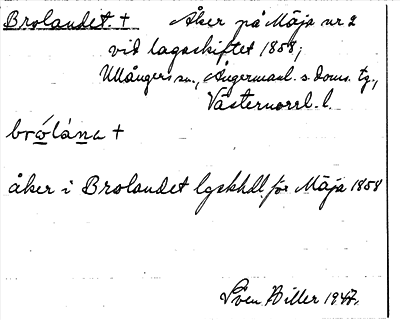 Brolandet + Åker på Mäja nr 2
vid lagaskiftet 1858;
Ullångers sn., Ångermanl. s. doms. tg.,
Västernorrl. l.
brólána +
åker i Brolandet lgskhdl. för Mäja 1858
Sven Biller 1947.